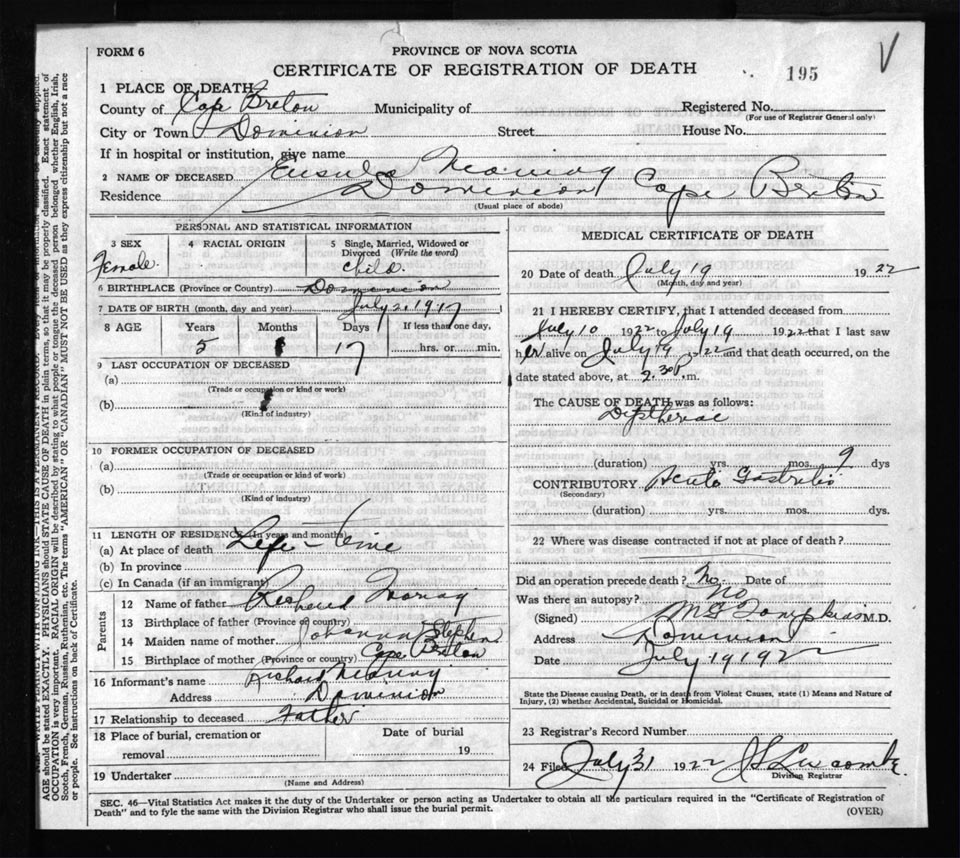 FORM 6
PROVINCE OF NOVA SCOTIA
CERTIFICATE OF REGISTRATION OF DEATH
195
1 PLACE OF DEATH
County of Cape Breton Municipality of Registered No.
(For use of Registrar General only)
City or Town Dominion Street House No.
If in hospital or institution, give name
2 NAME OF DECEASED
Residence Dominion Cape Breton
(Usual place of abode)
PERSONAL AND STATISTICAL INFORMATION
3 SEX 4 RACIAL ORIGIN 5 Single, Married, Widowed or Divorced (Write the word)
Female child.
6 BIRTHPLACE (Province or Country) Dominion
7 DATE OF BIRTH (month, day and year) July 2, 1917
8 AGE Years Months Days If less than one day,
5 17 hrs. or min.
9 LAST OCCUPATION OF DECEASED
(a)
(Trade or occupation or kind or work)
(b)
(Kind of industry)
10 FORMER OCCUPATION OF DECEASED
(a)
(Trade or occupation or kind of work)
(b)
(Kind of industry)
11 LENGTH OF RESIDENCE (In years and months)
(a) At place of death Life-Time
(b) In province
(c) In Canada (if an immigrant)
Parents
12 Name of father Richard
13 Birthplace of father (Province or country)
14 Maiden name of mother Johanna Stephens
15 Birthplace of mother (Province or country) Cape Breton
16 Informant's name Richard
Address Dominion
17 Relationship to deceased Father
18 Place of burial, cremation or removal Date of burial 19
19 Undertaker
(Name and Address)
MEDICAL CERTIFICATE OF DEATH
20 Date of death July 19 1922
(Month, day and year)
21 I HEREBY CERTIFY, that I attended deceased from
July 10 1922 to July 19 1922 that I last saw
her alive on July 19 1922 and that death occurred, on the
date stated above, at 2.30 P. m.
The CAUSE OF DEATH was as follows:
Diptheriae
(duration) yrs. mos. 9 dys
CONTRIBUTORY Acute Gastritis
(Secondary)
(duration) yrs. mos. dys.
22 Where was disease contracted if not at place of death?
Did an operation precede death? No Date of
Was there an autopsy? No
(Signed) M G Tompkins M.D.
Address Dominion
Date July 19 1922
State the Disease causing Death, or in death from Violent Causes, state (1) Means and Nature of
Injury, (2) whether Accidental, Suicidal or Homicidal.
23 Registrar's Record Number
24 Filed July 31 1922
Division Registrar
SEC. 46—Vital Statistics Act makes it the duty of the Undertaker or person acting as Undertaker to obtain all the particulars required in the "Certificate of Registration of
Death" and to fyle the same with the Division Registrar who shall issue the burial permit.
(OVER)
AGE should be stated EXACTLY. PHYSICIANS should STATE CAUSE OF DEATH in plain terms, so that it may be properly classified. Exact statement of
OCCUPATION is very important. RACIAL ORIGIN will be described by stating to what people or tongue the deceased person belonged whether English, Irish,
Scotch, French, German, Russian, Ruthenian, etc. The terms "AMERICAN" OR "CANADIAN" MUST NOT BE USED as they express citizenship but not a race
or people. See instructions on back of Certificate.